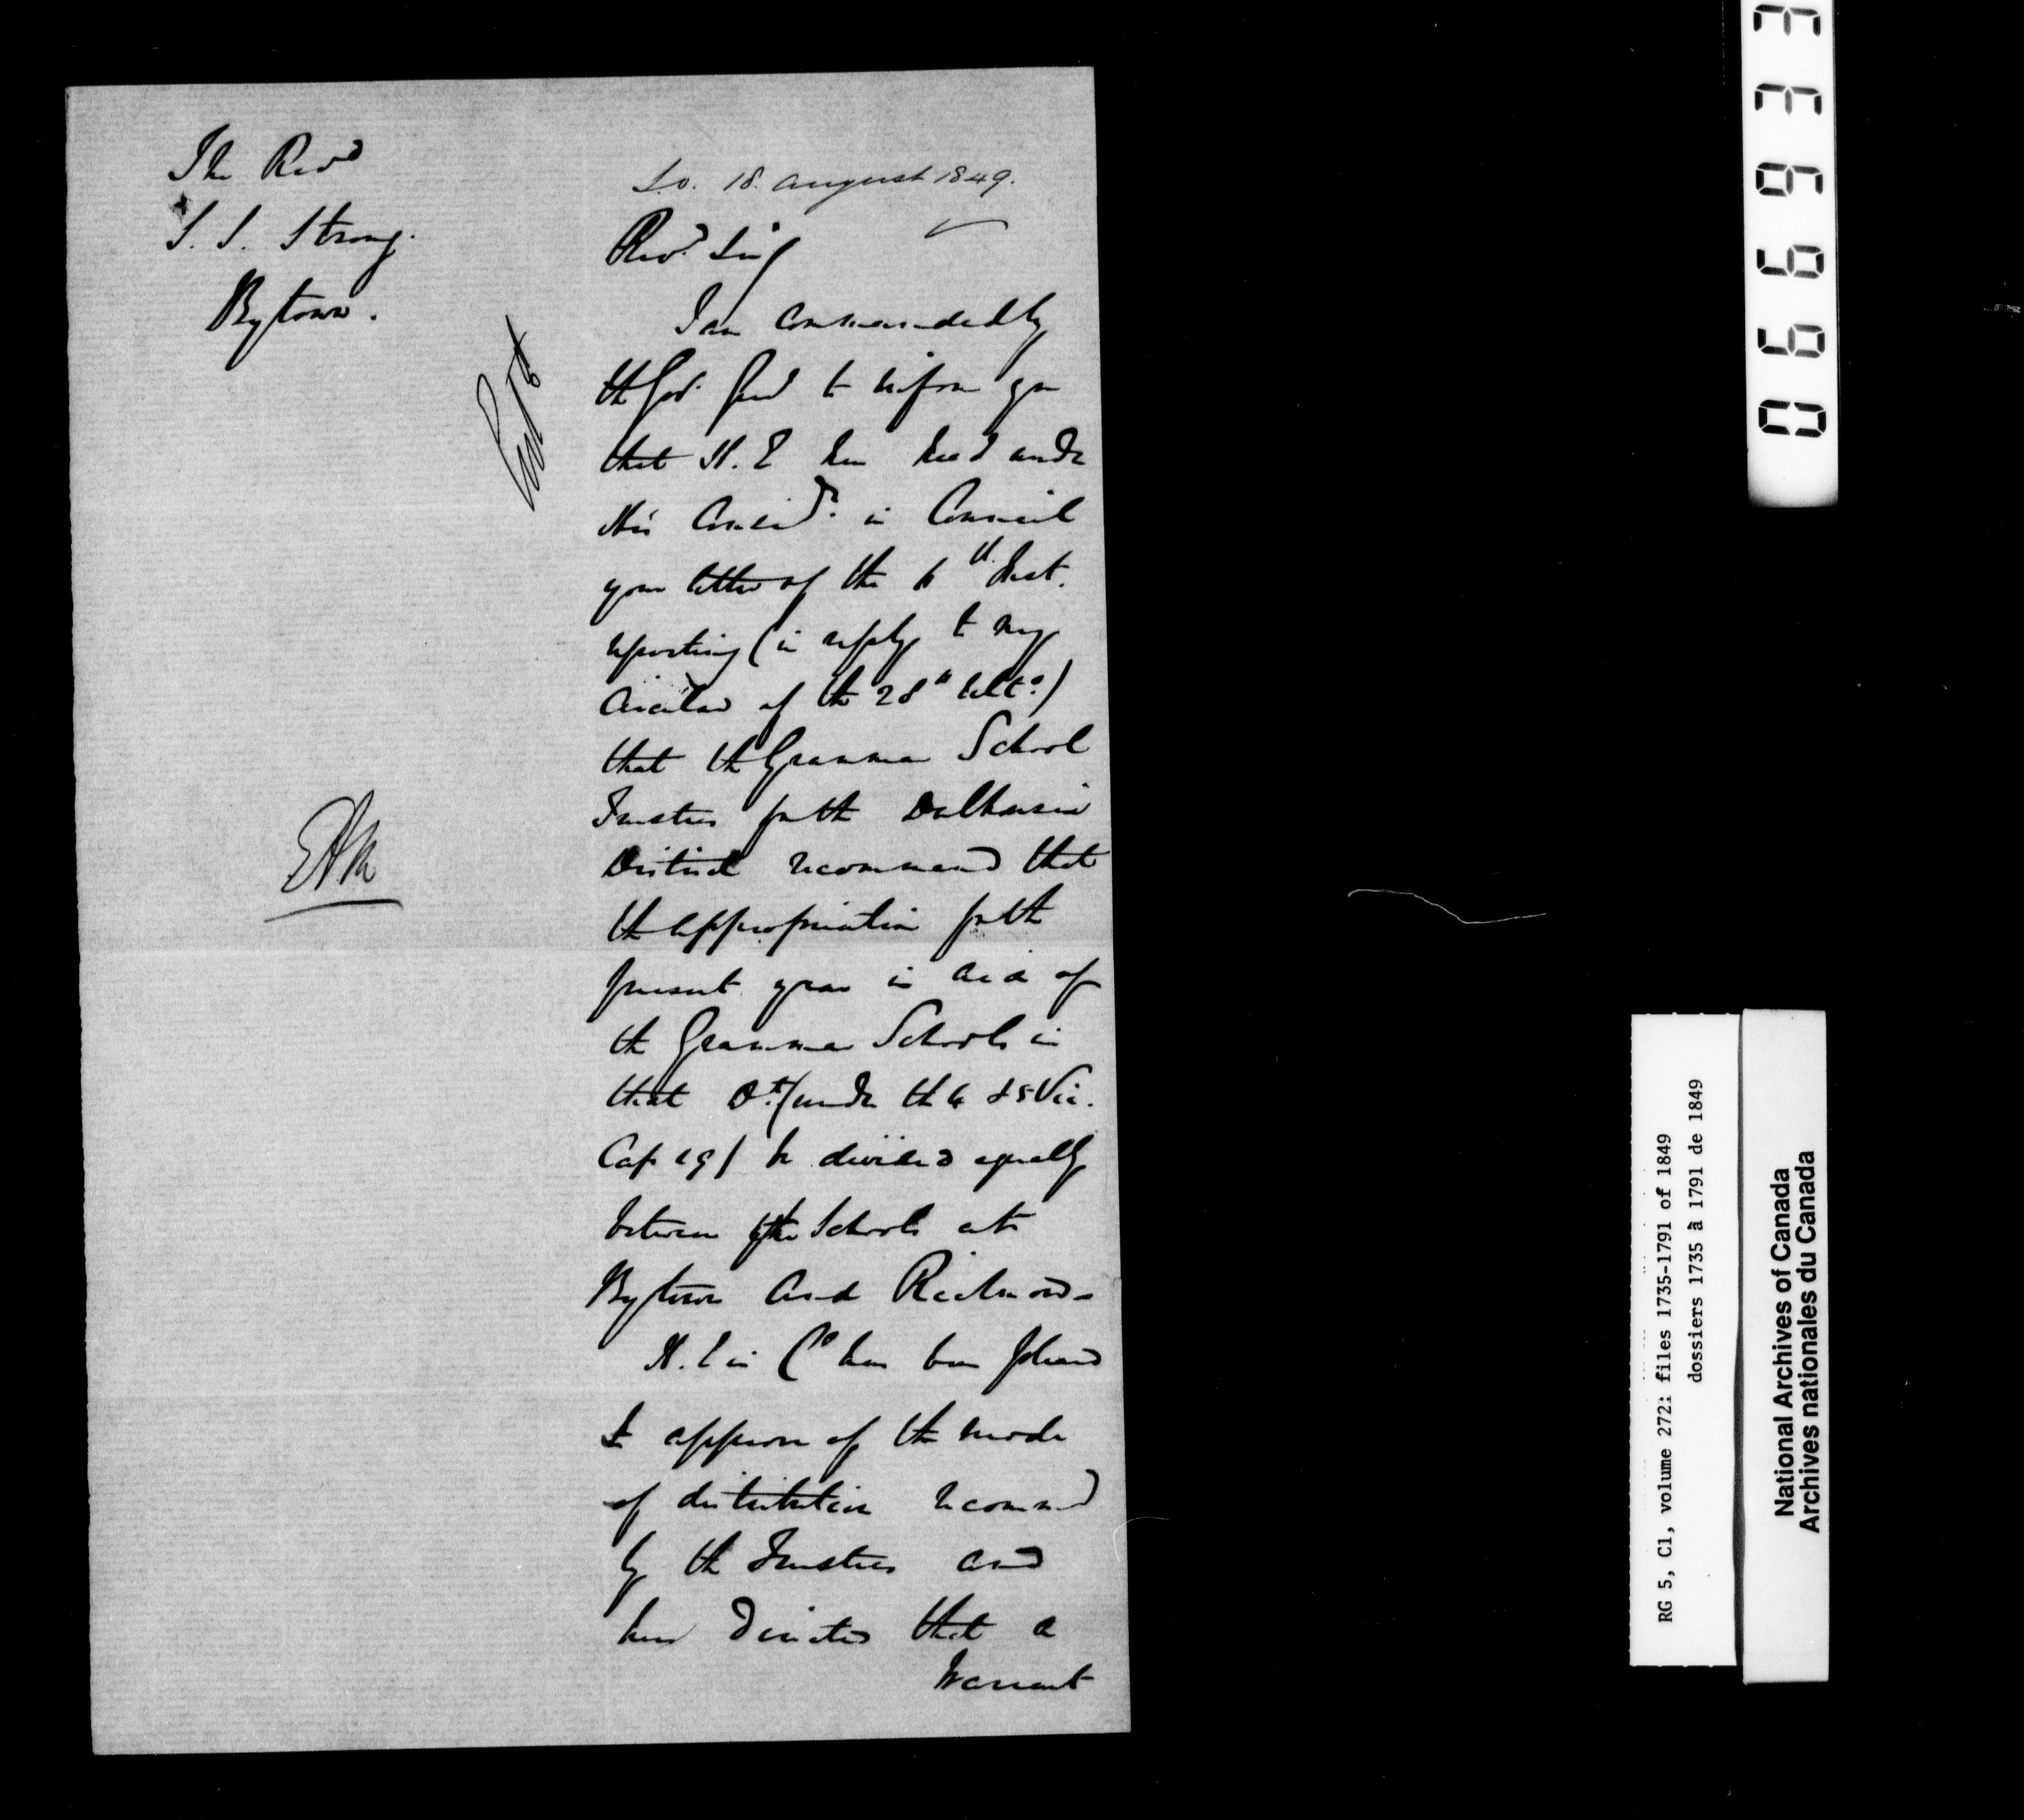 The Revd
S. S. Strong.
Bytown.
S.O. 18. August 1849.
Revd. Sir,
I am commanded by
th Gov. Genl to inform you
that H. E has had under
His Considn. in Council
your letter of the 6th Inst.
reporting (in reply to my
Circular of th 28th Ulto.)
that th Grammar School
Trustees for th Dalhousie
District recommend that
th appropriation for th
present year in aid of
th Grammar Schools in
that Dt. (under th 4 & 5 Vic.
Cap 19) be divided equally
between the Schools at
Bytown and Richmond
H. E in Co has been pleased
to approve of th mode
of distribution recommd
by th Trustees and
has directed that a
Warrant
EAM
066933
RG 5, C1, volume 272: files 1735-1791 of 1849
dossiers 1735 à 1791 de 1849
National Archives of Canada
Archives nationales du Canada